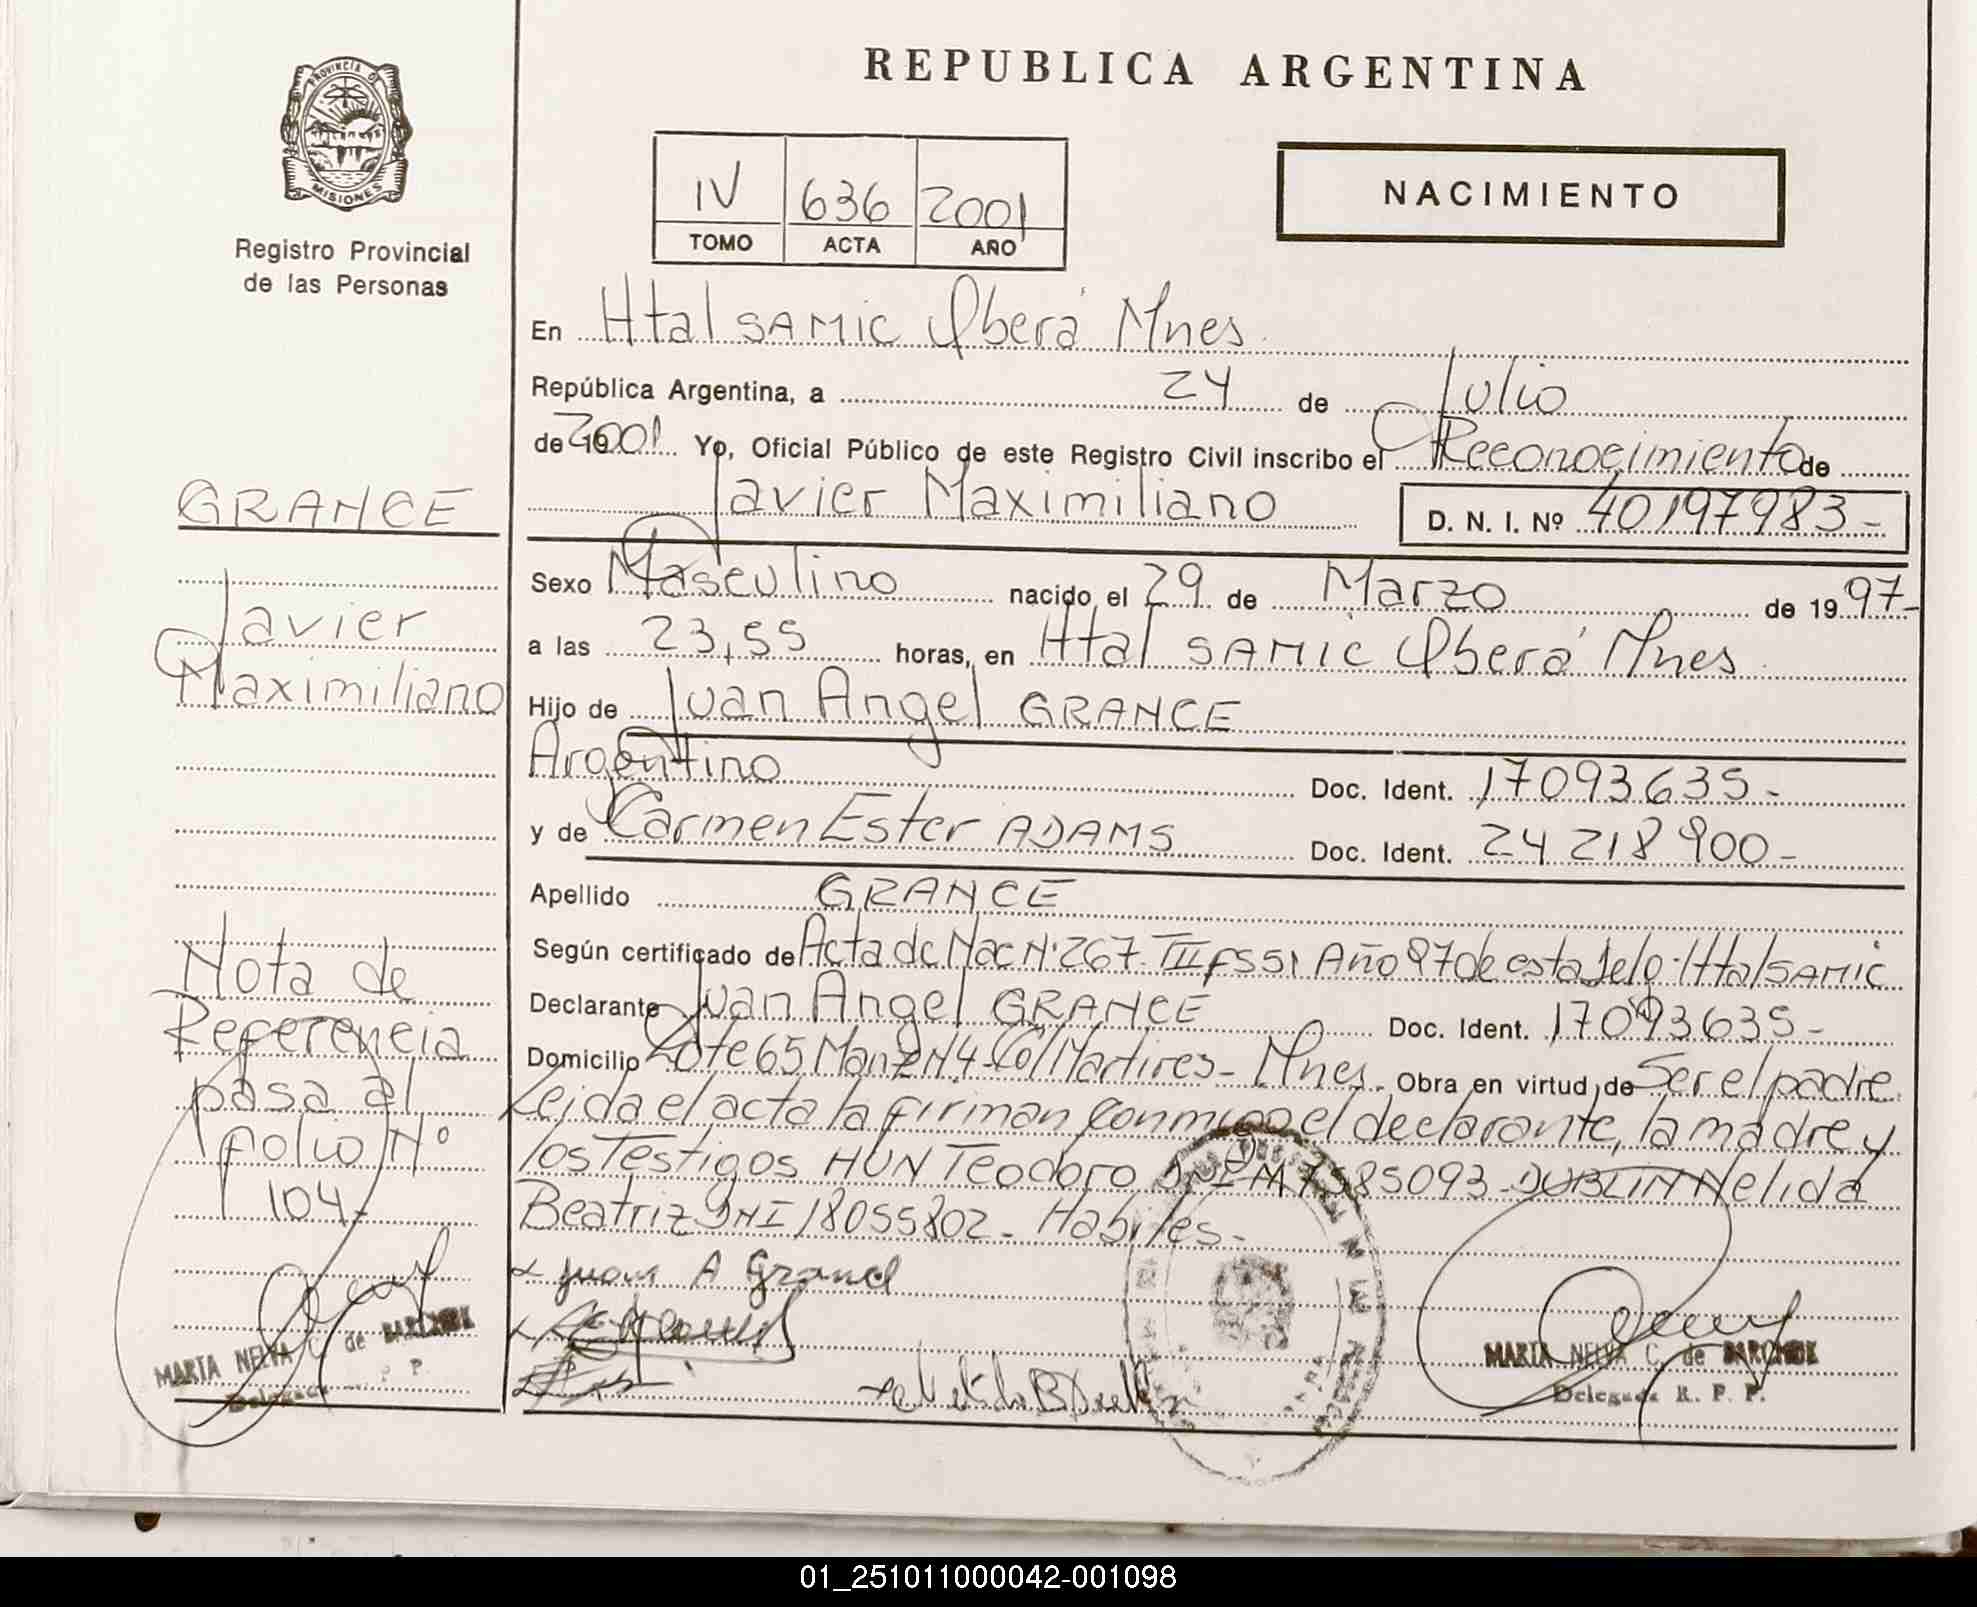 REPUBLICA ARGENTINA
PROVINCIA D
MISIONES
Registro Provincial
de las Personas
IV 636 2001
TOMO ACTA AÑO
NACIMIENTO
En Htal SAMIC Oberá Mnes.
República Argentina, a 24 de Julio
de 2001 Yo, Oficial Público de este Registro Civil inscribo el Reconocimiento de
Javier Maximiliano D. N. I. Nº 40197983-
Sexo Masculino nacido el 29 de Marzo de 1997-
a las 23,55 horas, en Htal SAMIC Oberá Mnes.
Hijo de Juan Angel GRANCE
Argentino Doc. Ident. 17093635-
y de Carmen Ester ADAMS Doc. Ident. 24 218 900-
Apellido GRANCE
Según certificado de Acta de Nac Nº 267 TIII FS 51 Año 97 de esta Deleg. Htal SAMIC
Declarante Juan Angel GRANCE Doc. Ident. 17093635-
Domicilio Lote 65 Manz N4 Col Martires- Mnes. Obra en virtud de Ser el padre.
Leida el acta la firman conmigo el declarante, la madre y
los Testigos HUN Teodoro DNI M7585093 DUBLIN Nelida
Beatriz DNI 18055802- Habiles-
GRANCE
Javier
Maximiliano
Nota de
Referencia
pasa al
folio Nº
104-
MARTA NELVA C. de
Delegada
P. P.
x Juan A Grance
x Nelida B Dublin
MARTA NELVA C. de
Delegada R. P. P.
01_251011000042-001098